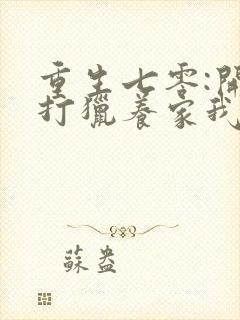 重生七零:開
打獵養家我
蘇盎